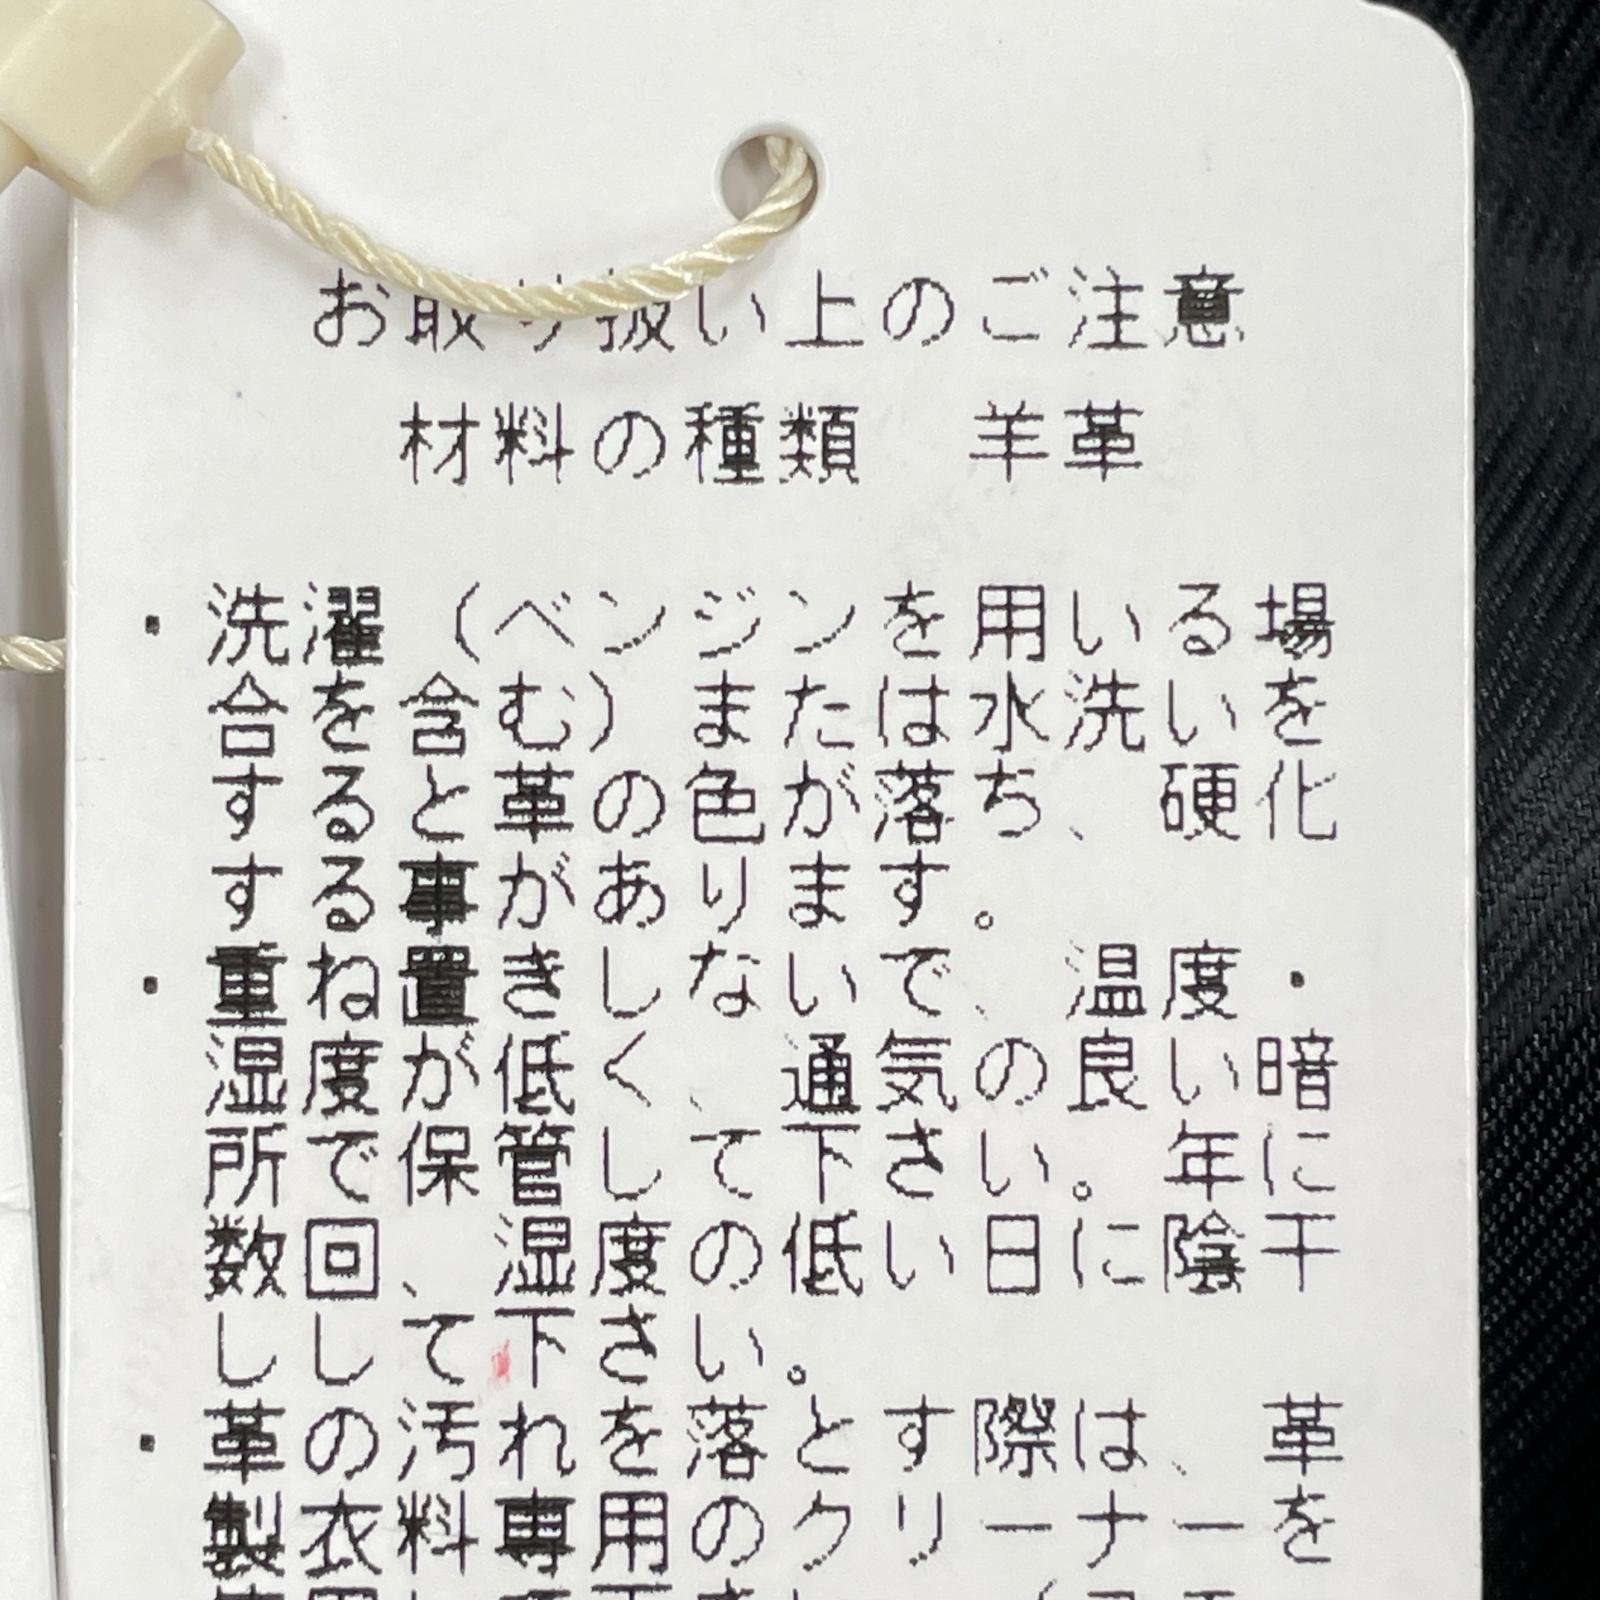 お取り扱い上のご注意
材料の種類　羊革
・洗濯（ベンジンを用いる場
合を含む）または水洗いを
すると革の色が落ち、硬化
する事があります。
・重ね置きしないで、温度・
湿度が低く、通気の良い暗
所で保管して下さい。年に
数回、湿度の低い日に陰干
しして下さい。
・革の汚れを落とす際は、革
製衣料専用のクリーナーを